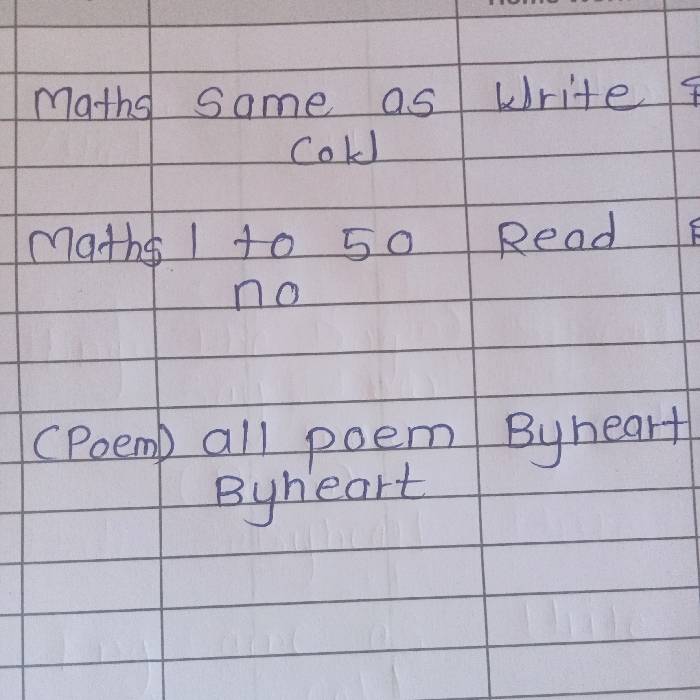 Maths Same as Write
Cow
Maths 1 to 50 Read
no
(Poem) all poem Byheart
Byheart